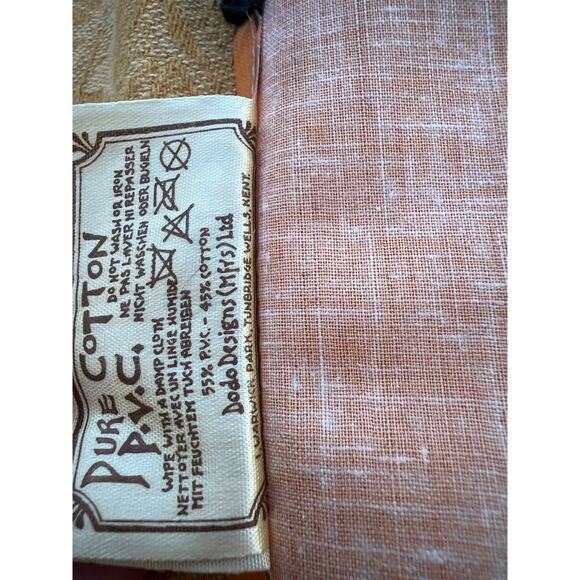 PURE COTTON
P.V.C.
DO NOT WASH OR IRON
NE PAS LAVER NI REPASSER
NICHT WASCHEN ODER BUGELN
WIPE WITH A DAMP CLOTH
NETTOYER AVEC UN LINGE HUMIDE
MIT FEUCHTEM TUCH ABREIBEN
55% P.V.C. - 45% COTTON
Dodo Designs (Mfrs) Ltd
1 WARWICK PARK, TUNBRIDGE WELLS, KENT.